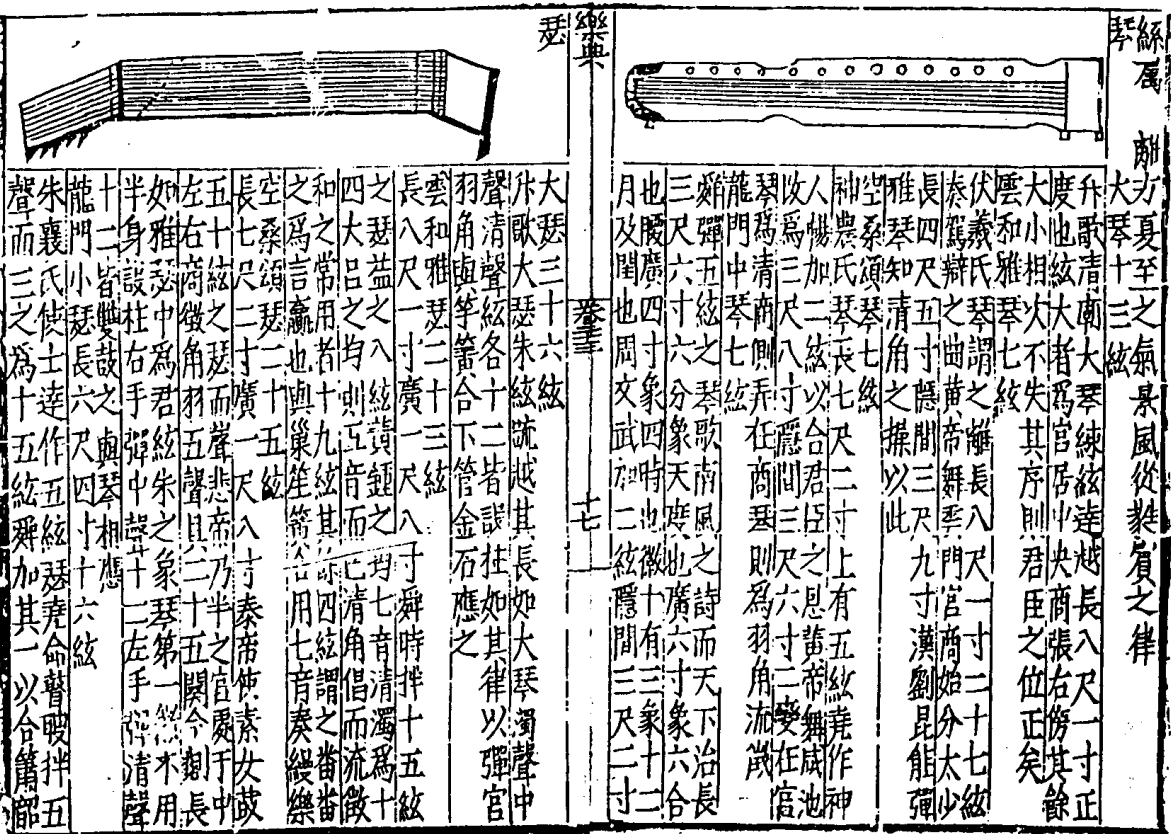 絲属 離 方夏至之氣景風從蕤賔之律
琴
大琴十三絃
升歌清廟大琴練絃達越長八尺一寸正
度也絃大者爲宮居中央商張右傍其餘
大小相次不失其序則君臣之位正矣
雲和雅琴七絃
伏羲氏琴謂之離長八尺一寸二十七絃
泰駕辯之曲黄帝舞雲門宮商始分太少
長四尺五寸隱間三尺九寸漢劉昆能彈
雅琴知清角之操以此
空桑頌琴七絃
神農氏琴長七尺二寸上有五絃堯作神
人暢加二絃以合君臣之恩黄帝舞咸池
改爲三尺八寸隱間三尺六寸二變在宮
琴爲清商側弄在商琴則爲羽角流徵
龍門中琴七絃
舜彈五絃之琴歌南風之詩而天下治長
三尺六寸六分象天度也廣六寸象六合
也腰廣四寸象四時也徽十有三象十二
月及閏也周文武加二絃隱間三尺二寸
樂典
卷三三
十七
瑟
大瑟三十六絃
升歌大瑟朱絃疏越其長如大琴濁聲中
聲清聲絃各十二皆設柱如其律以彈宮
羽角與竽簧合下管金石應之
雲和雅瑟二十三絃
長八尺一寸廣一尺八寸舜時拌十五絃
之瑟益之八絃黄鍾之均七音清濁爲十
四大呂之均則五音而已清角倡而流徵
和之常用者十九絃其餘四絃謂之番番
之爲言羸也與巢笙簫合用七音奏縵樂
空桑頌瑟二十五絃
長七尺二寸廣一尺八寸泰帝使素女鼓
五十絃之瑟而聲悲帝乃半之宮處于中
左右商徵角羽五聲具二十五闋今制長
如雅瑟中爲君絃朱之象琴第一絃不用
半身設柱右手彈中聲十二左手彈清聲
十二皆雙鼓之與琴相應
龍門小瑟長六尺四寸十六絃
朱襄氏使士逹作五絃瑟堯命瞽瞍拌五
聲而三之爲十五絃舜加其一以合簫韶